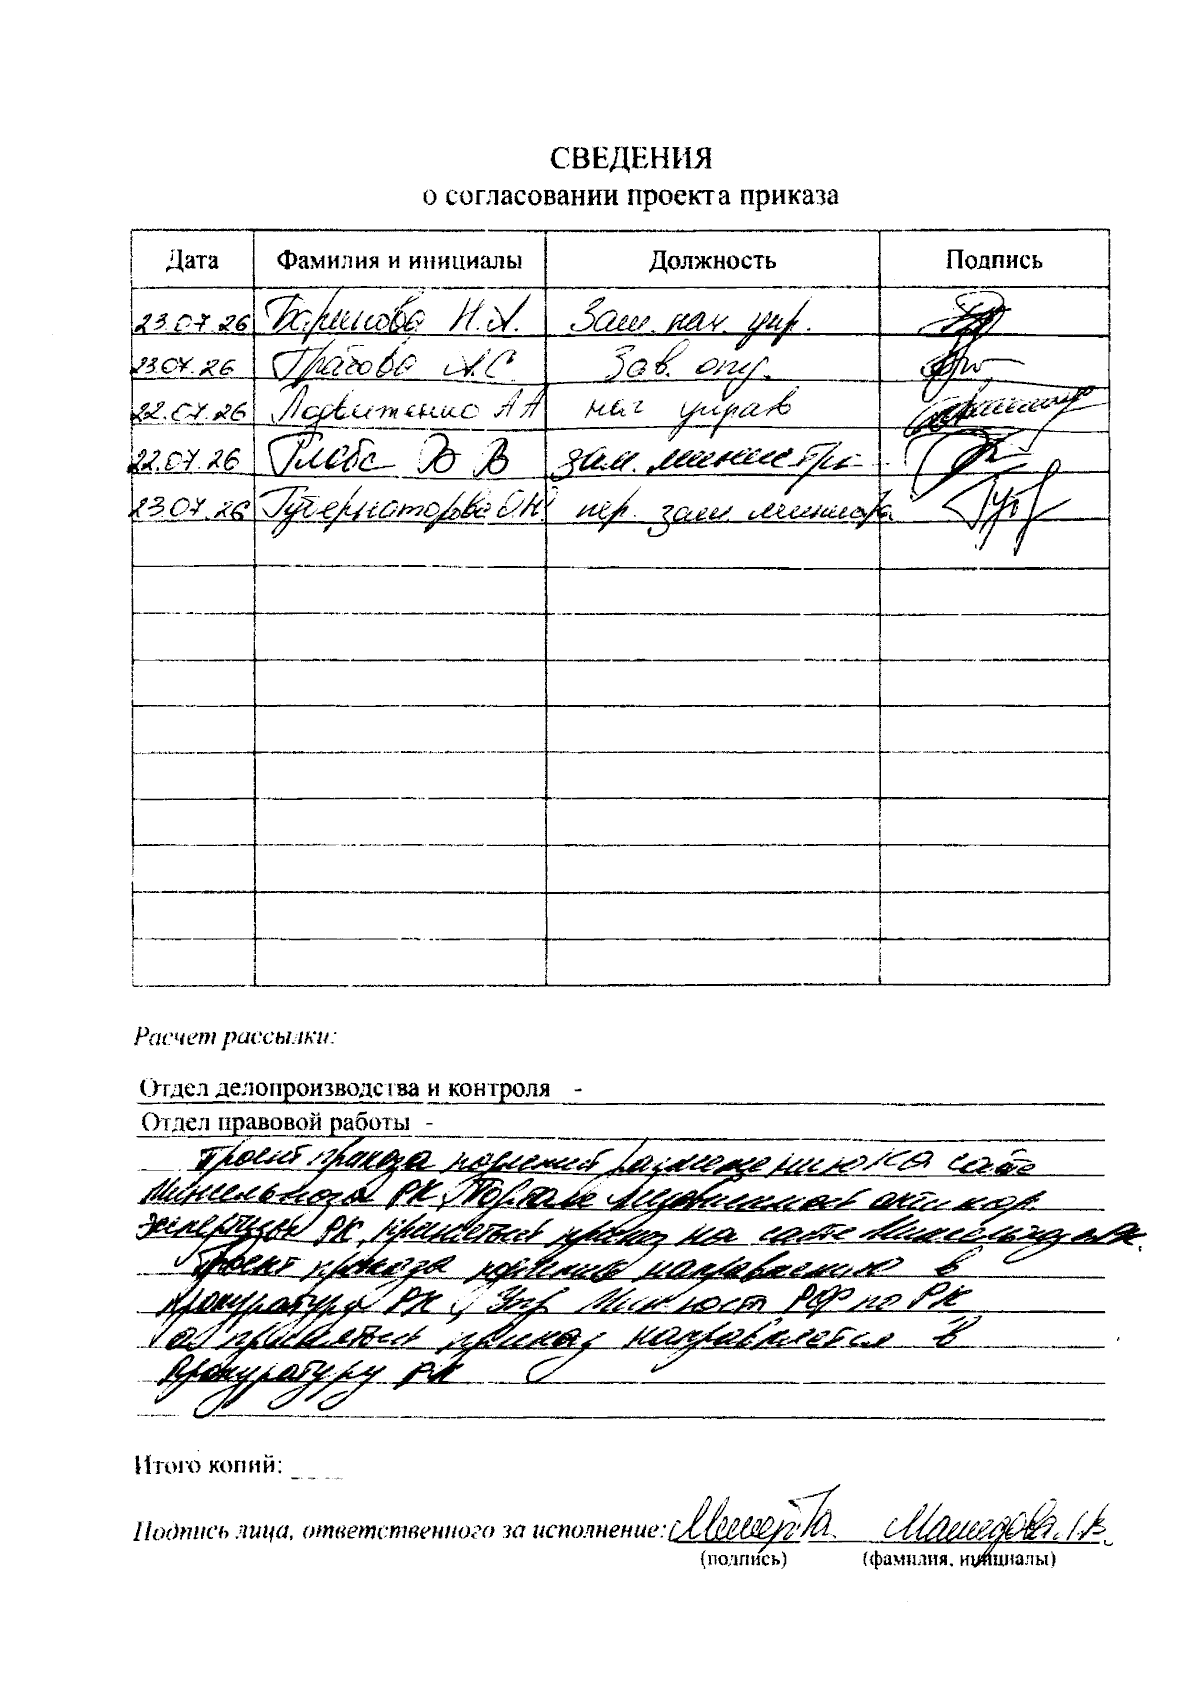 СВЕДЕНИЯ
о согласовании проекта приказа
Дата Фамилия и инициалы Должность Подпись
23.07.26 Баринова Н.А. Зам. нач. упр.
23.07.26 А.С. Зав. отд.
22.07.26 А А нач управ
22.07.26 Глоба В В зам. министра
23.07.26 Губернаторова О.Н. пер. зам. министра
Расчет рассылки:
Отдел делопроизводства и контроля -
Отдел правовой работы -
Проект приказа подлежит размещению на сайте
Минсельхоза РК, Портале
экспертизы РК, принятый приказ на сайте Минсельхоза РК.
Проект приказа подлежит направлению в
прокуратуру РК, Упр Минюста РФ по РК
а принятый приказ направляется в
Прокуратуру РК
Итого копий:
Подпись лица, ответственного за исполнение:
(подпись) (фамилия, инициалы)